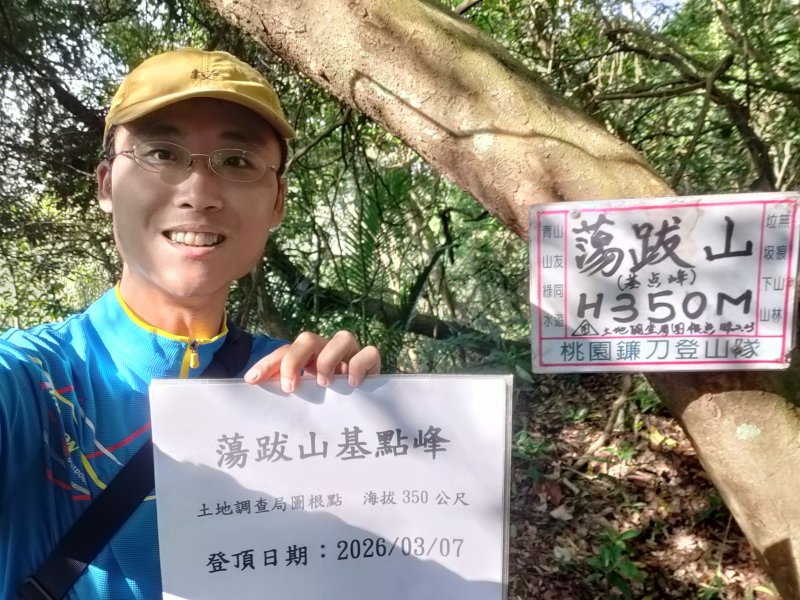 蕩跋山
(基点峰)
H350M
土地調查局圖根點
桃園鐮刀登山隊
青山
山友
綠同
水遊
無垃
痕圾
山下
林山
蕩跋山基點峰
土地調查局圖根點 海拔 350 公尺
登頂日期：2026/03/07